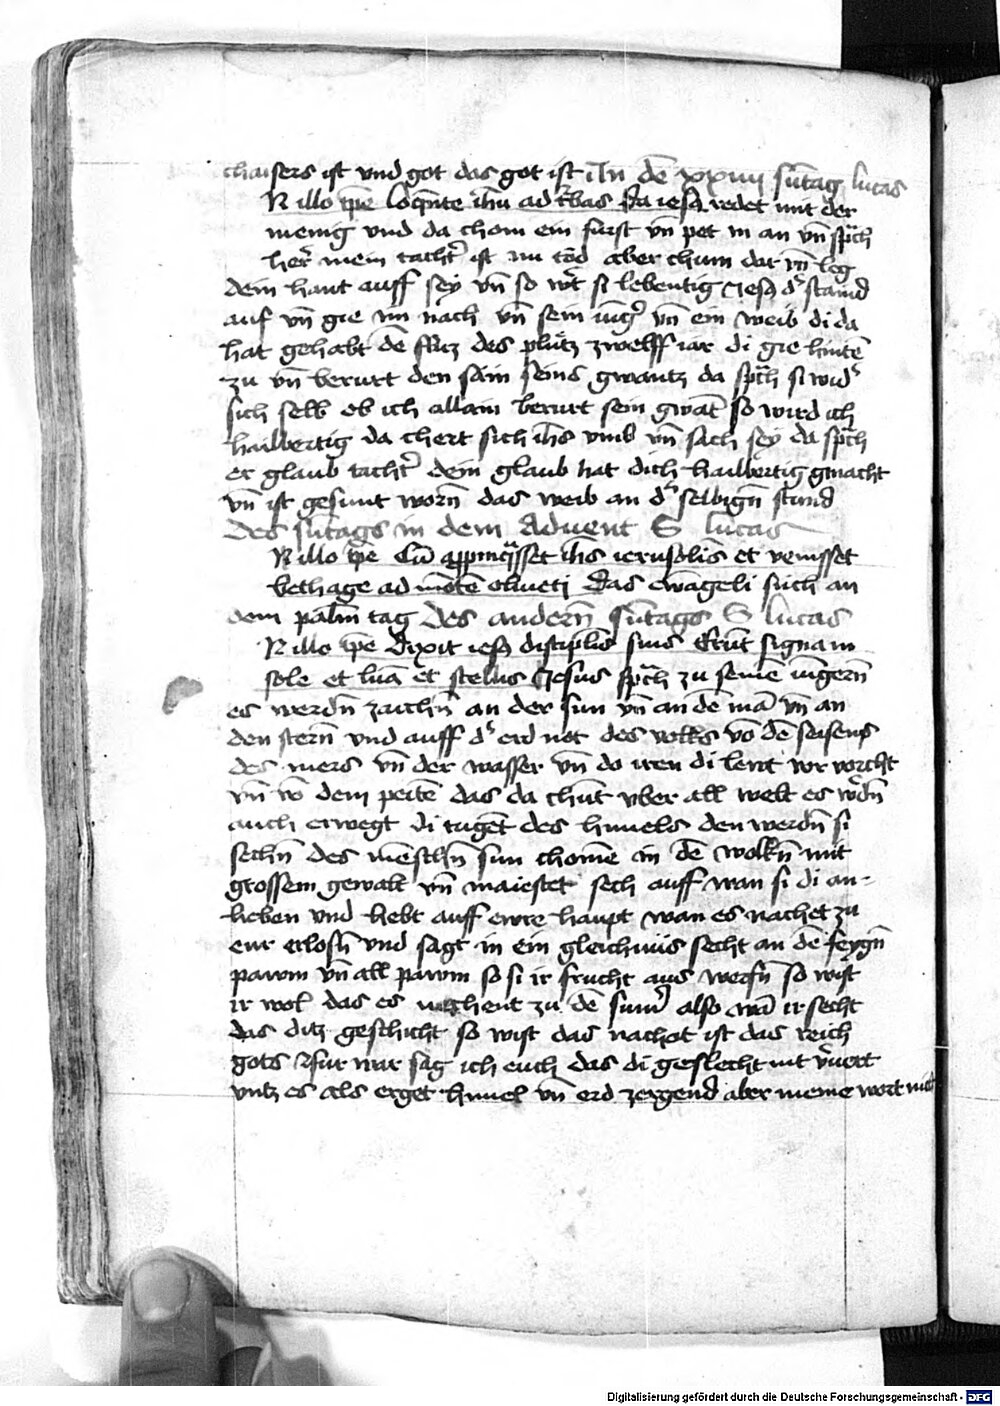 chaisers ist vnd got das got ist In dē xxiiij sūtag lucas
N illo tꝑe loq̄nte ihū ad t͛bas Da iesꝫ redet mit der
menig vnd da chom ein furst vn̄ pet in an vn̄ sp̄ch
her͛ mein tacht͛ ist nu tod aber chum dar vn̄ leg
dein hant auff sey vn̄ so w͛t si lebentig Iesꝫ d͛ stānd
auf vn̄ gie im nach vn̄ sein iūg͛ vn̄ ein weib di da
hat gehabt dē flūz des plūtz zwelff iar di gie hintē
zu vn̄ berurt den sām seins gwantz da sp̄ch si wid͛
sich selb ob ich allain berurt sein gwāt so wird ich
hailbertig da chert sich ihs vmb vn̄ sach sey da sp̄ch
er glaub tacht͛ dein glaub hat dich hailbertig gmacht
vn̄ ist gesunt worn̄ das weib an d͛ selbign̄ stund
Des sūtags in dem Aduent S lucas
N illo tꝑe Cū appinq̄sset ihs ierusolis̄ et venisset
bethage ad mōtē oliueti Das ewāgeli such an
dem palm̄ tag Des andern̄ sūtags S lucas
N illo tꝑe Dixit iesꝫ discipl̄is suis Erūt signam
sole et lūa et stellis Iesus sp̄ch zu seinē iūgern̄
es werdn̄ zaichn̄ an der sun vn̄ an dē mā vn̄ an
den stern̄ vnd auff d͛ erd not des volks vō dē sausens
des mers vn̄ der wasser vn̄ do iren di lewt vor vorcht
vn̄ vō dem peitē das da chūt vber all welt es w͛dn̄
auch erwegt di tugēt des himels den werdn̄ si
sechn̄ des mēschn̄ sun chomē in dē wolkn̄ mit
grossem gewalt vn̄ maiestet sech auff wan si di an-
heben vnd hebt auff ewre haupt wan es nachet zu
eur erlosn̄ vnd sagt in ein gleichnūs secht an dē feygn̄
pawm vn̄ all pawm so si ir frucht aus werfn̄ so wist
ir wol das es nachent zu dē sum͛ also wā ir secht
das ditz geschicht so wist das nachot ist das reich
gots fur war sag ich euch das di geslecht nit v͛uert
vntz es als erget himel vn̄ erd zergend aber meine wort nit
Digitalisierung gefördert durch die Deutsche Forschungsgemeinschaft - DFG